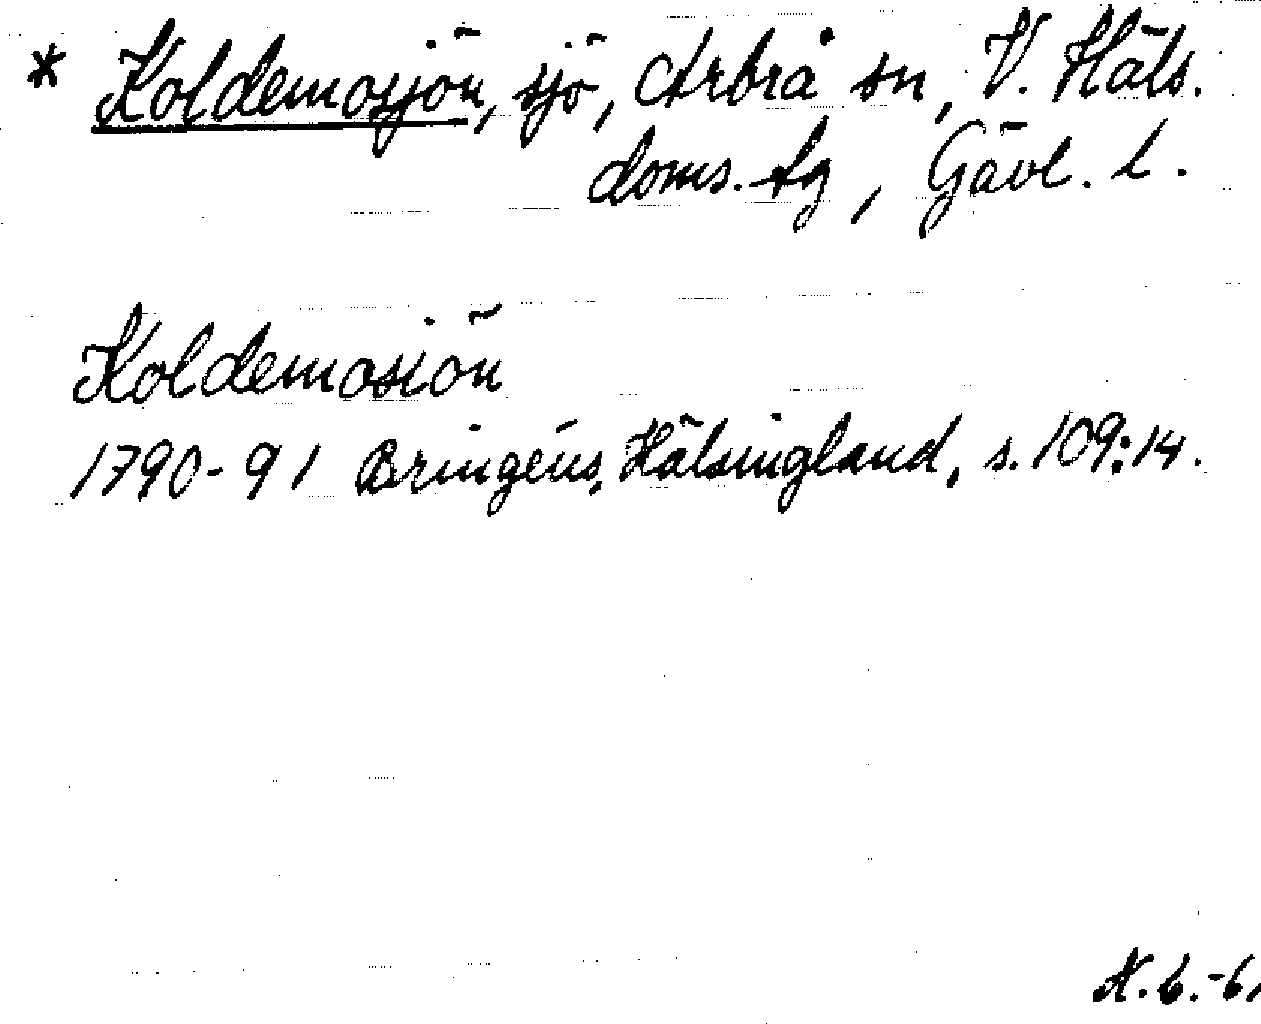 * Koldemosjön, sjö, Arbrå sn, V. Häls.
doms.-tg, Gävl. l.
Koldemosiön
1790-91 Bringéus, Hälsingland, s. 109:14.